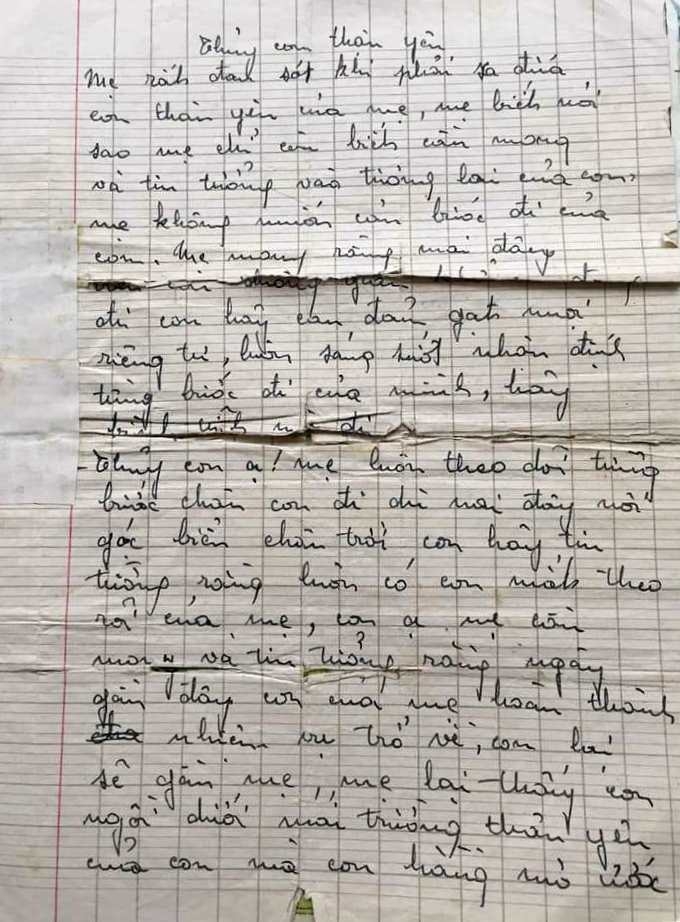 Thủy con thân yên
Mẹ rất đau sót khi phải xa đứa
con thân yên của mẹ, mẹ biết nói
sao mẹ chỉ còn biết cầu mong
và tin tưởng vào tương lai của con,
mẹ không muốn cản bước đi của
con. Mẹ mong rằng mai đây
đi con hãy can đảm gạt nước
riêng tư, luôn sáng suốt nhận định
từng bước đi của mình, hãy
- Thủy con ạ! mẹ luôn theo dõi từng
bước chân con đi dù nơi đây nơi
góc biển chân trời con hãy tin
tưởng rằng luôn có con mắt theo
rõi của mẹ, con ạ mẹ cầu
mong và tin tưởng rằng ngày
gần đây con của mẹ hoàn thành
nhiệm vụ trở về, con lại
sẽ gần mẹ, mẹ lại thấy con
ngồi dưới mái trường thân yên
của con mà con hằng mơ ước